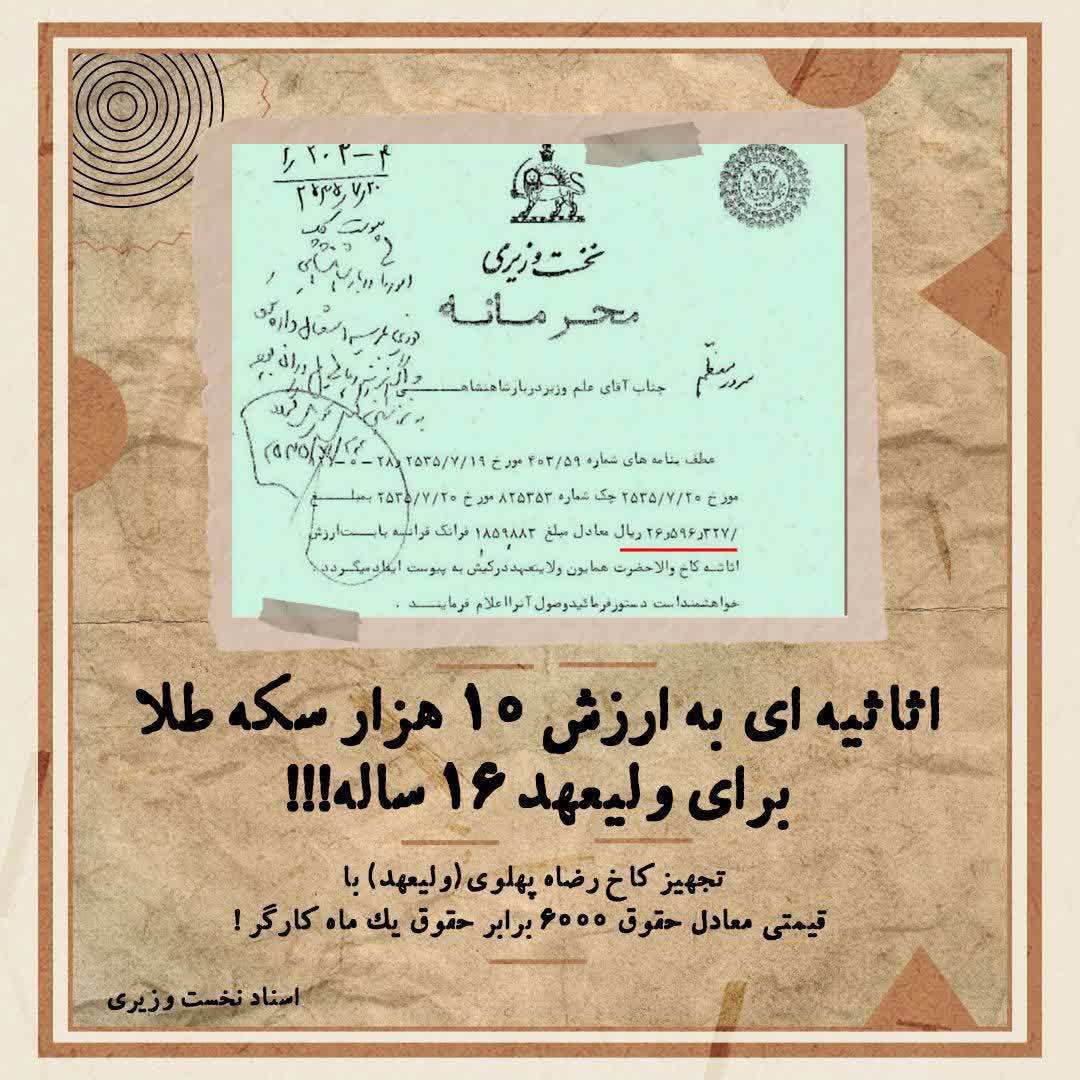 ۲۰۳-۴
نخست وزیری
محرمانه
سرور معظم
جناب آقای علم وزیر دربار شاهنشاهی
عطف بنامه های شماره ۴۰۳/۵۹ مورخ ۲۵۳۵/۷/۱۹ و
مورخ ۲۵۳۵/۷/۲۰ چک شماره ۸۲۵۳۵۳ مورخ ۲۵۳۵/۷/۲۰ بمبلغ
/۲۶٫۵۹۶٫۳۲۷ ریال معادل مبلغ ۱۸۵۹۸۸۳ فرانک فرانسه بابت ارزش
اثاثه کاخ والاحضرت همایون ولایتعهد در کیش به پیوست ایفاد میگردد
خواهشمند است دستور فرمائید وصول آنرا اعلام فرمایند .
اثاثیه ای به ارزش ۱۰ هزار سکه طلا
برای ولیعهد ۱۶ ساله!!!
تجهیز کاخ رضاه پهلوی(ولیعهد) با
قیمتی معادل حقوق ۶۰۰۰ برابر حقوق یك ماه کارگر !
اسناد نخست وزیری